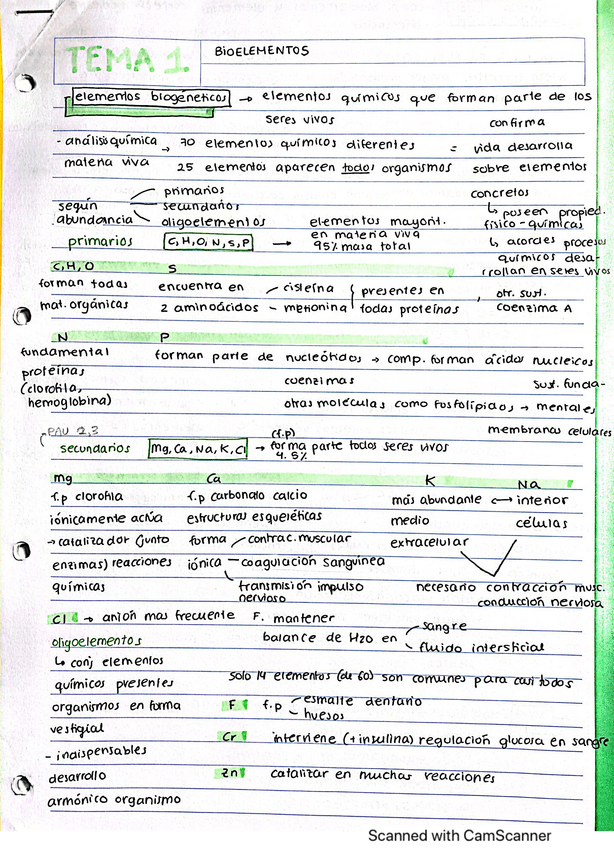 TEMA 1.
BIOELEMENTOS
elementos biogenéticos → elementos químicos que forman parte de los
seres vivos
confirma
- análisis química → 70 elementos químicos diferentes = vida desarrolla
materia viva 25 elementos aparecen todos organismos sobre elementos
concretos
según abundancia
primarios
secundarios
oligoelementos
↳ poseen propied.
físico-químicas
↳ acordes procesos
químicos desa-
rrollan en seres vivos
primarios C, H, O, N, S, P → elementos mayorit.
en materia viva
95% masa total
C, H, O S
forman todas encuentra en cisteína presentes en , otr. sust.
mat. orgánicas 2 aminoácidos - metionina todas proteínas coenzima A
N P
fundamental forman parte de nucleótidos → comp. forman ácidos nucleicos
proteínas
(clorofila, coenzimas sust. funda-
hemoglobina) otras moléculas como fosfolípidos → mentales
membranas celulares
PAU 2,3
secundarios Mg, Ca, Na, K, Cl → (f.p) forma parte todos seres vivos
4.5%
Mg Ca K Na
f.p clorofila f.p carbonato calcio más abundante ↔ interior
iónicamente actúa estructuras esqueléticas medio células
→ catalizador (junto forma contrac. muscular extracelular
enzimas) reacciones iónica - coagulación sanguínea
químicas transmisión impulso
nervioso
necesario contracción musc.
conducción nerviosa
Cl → anión mas frecuente F. mantener
balance de H2O en
sangre
fluido intersticial
oligoelementos
↳ conj elementos
químicos presentes
organismos en forma
vestigial
- indispensables
desarrollo
armónico organismo
solo 14 elementos (de 60) son comunes para casi todos
F f.p esmalte dentario
huesos
Cr interviene (+insulina) regulación glucosa en sangre
Zn catalizar en muchas reacciones
Scanned with CamScanner